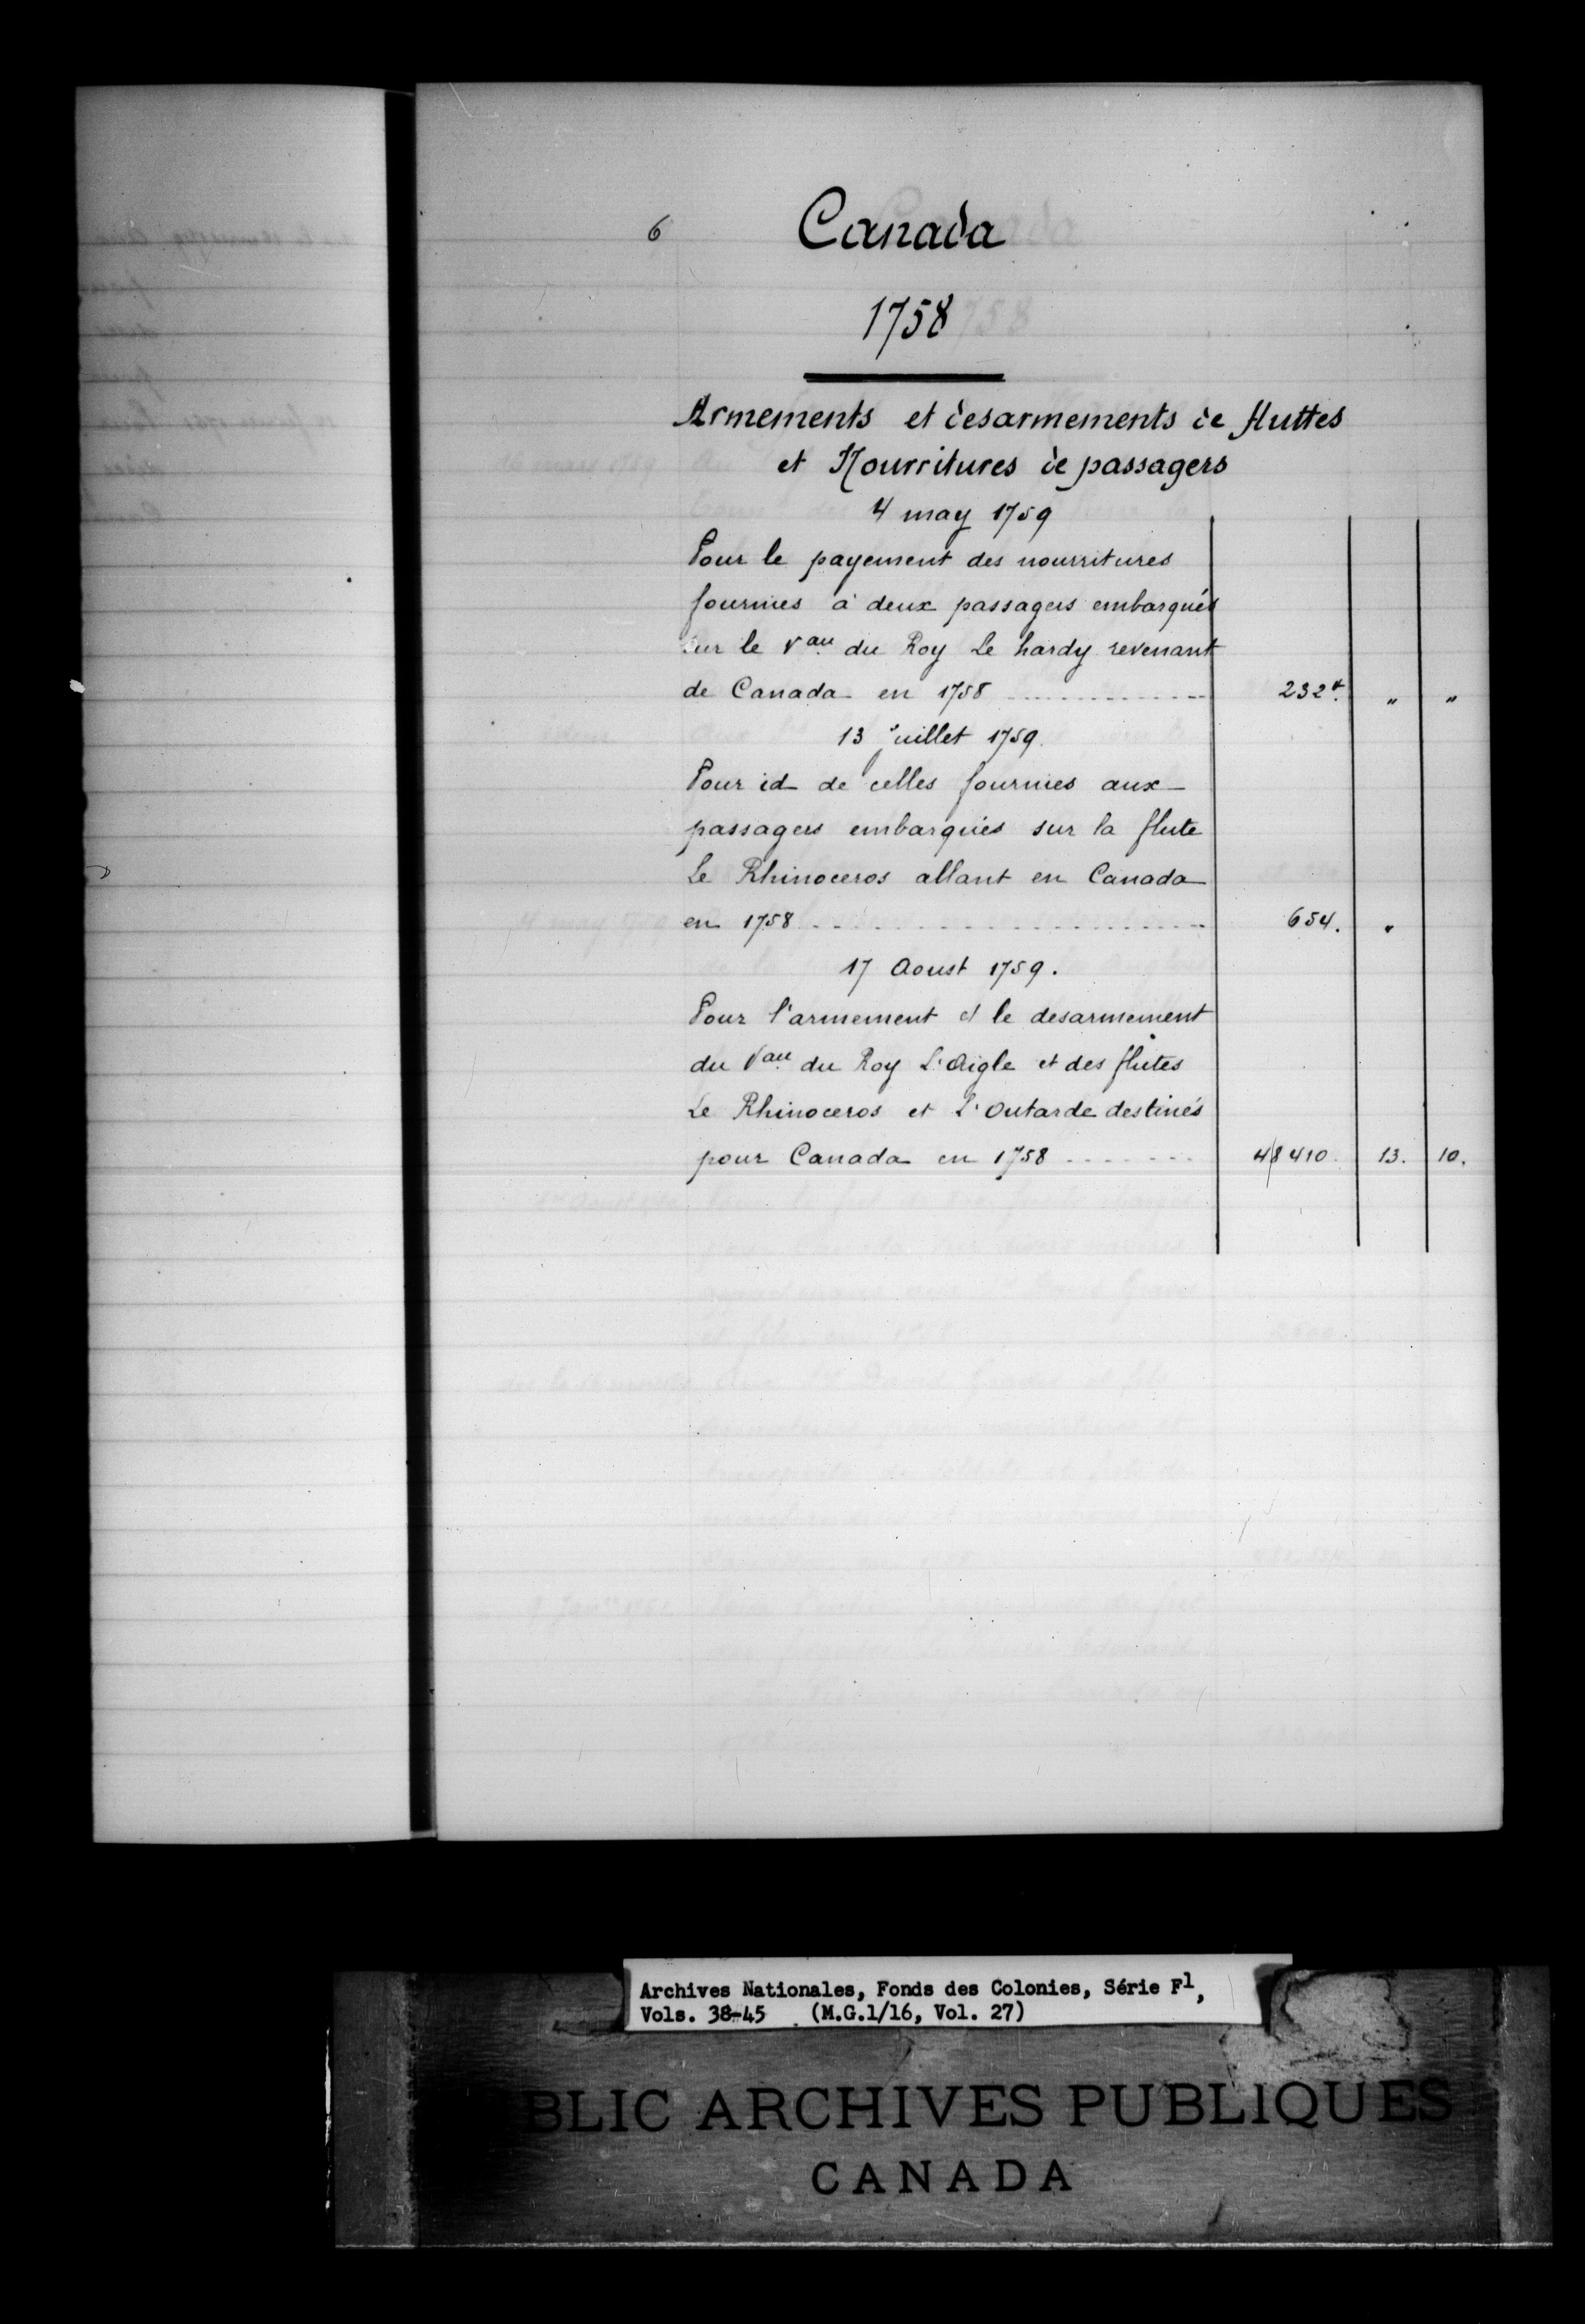 6
Canada
1758
Armements et desarmements de fluttes
et Nourritures de passagers
4 may 1759
Pour le payement des nourritures
fournies à deux passagers embarqués
sur le Vau du Roy Le hardy revenant
de Canada en 1758 .............. 232# " "
13 Juillet 1759.
Pour id de celles fournies aux
passagers embarqués sur la flute
Le Rhinoceros allant en Canada
en 1758 .............. 654. "
17 Aoust 1759.
Pour l'armement et le desarmement
du Vau du Roy L'Aigle et des flutes
Le Rhinoceros et L'Outarde destinés
pour Canada en 1758 ....... 48 410. 13. 10.
Archives Nationales, Fonds des Colonies, Série F1,
Vols. 38-45 (M.G.1/16, Vol. 27)
BLIC ARCHIVES PUBLIQUES
CANADA